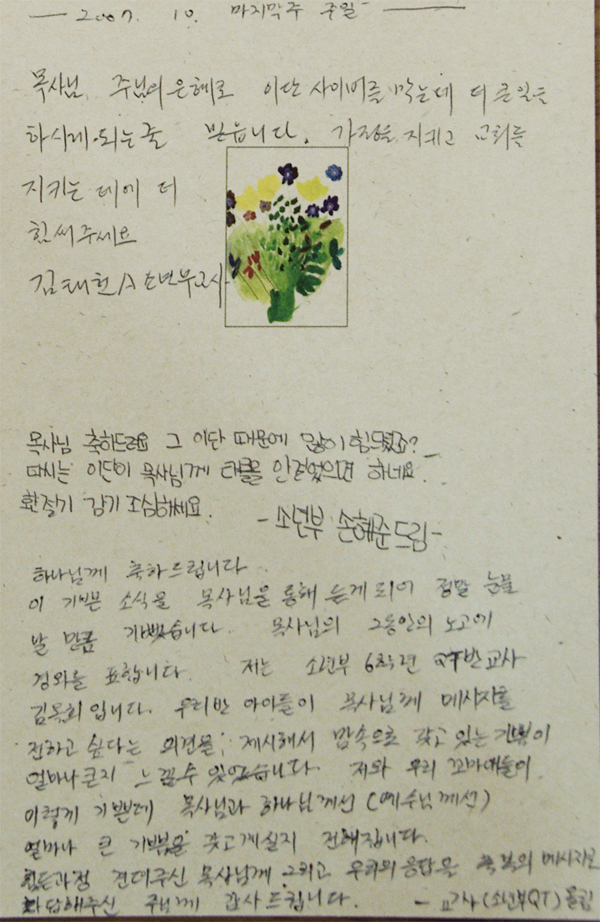 2007. 10. 마지막주 주일
목사님 주님의 은혜로 이단 사이버를 막는데 더 큰일을
하시게 되는줄 믿습니다. 가정을 지키고 교회를
지키는 데에 더
힘써주세요
김태헌/A 소년부교사
목사님 축하드려요 그 이단 때문에 많이 힘드셨죠?
다시는 이단이 목사님께 태클을 안걸었으면 하네요.
환절기 감기 조심하세요.
-소년부 손해준드림-
하나님께 축하드립니다
이 기쁜 소식을 목사님을 통해 듣게 되어 정말 눈물
날 만큼 기뻤습니다. 목사님의 그동안의 노고에
경의를 표합니다. 저는 소년부 6학년 QT반교사
김옥희입니다. 우리반 아이들이 목사님께 메시지를
전하고 싶다는 의견을 제시해서 맘속으로 갖고 있는 기쁨이
얼마나 큰지 느낄수 있었습니다. 저와 우리 꼬마애들이
이렇게 기쁜데 목사님과 하나님께선 (예수님께선)
얼마나 큰 기쁨을 갖고계실지 전해집니다.
힘든과정 견뎌주신 목사님께 그리고 우리의 응답을 축복의 메시지로
화답해주신 주님께 감사드립니다. - 교사(소년부QT) 올림